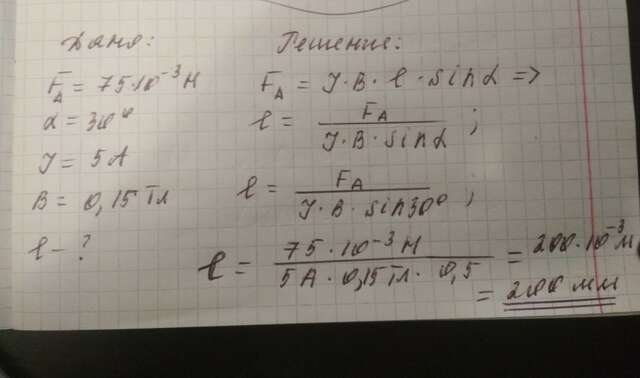 Дано:
F_A = 75·10⁻³ Н
α = 30°
J = 5 А
B = 0,15 Тл
ℓ — ?
Решение:
F_A = J · B · ℓ · sin α =>
ℓ = F_A / J · B · sin α ;
ℓ = F_A / J · B · sin 30° ;
ℓ = 75 · 10⁻³ Н / 5 А · 0,15 Тл · 0,5 = 200 · 10⁻³ м
= 200 мм